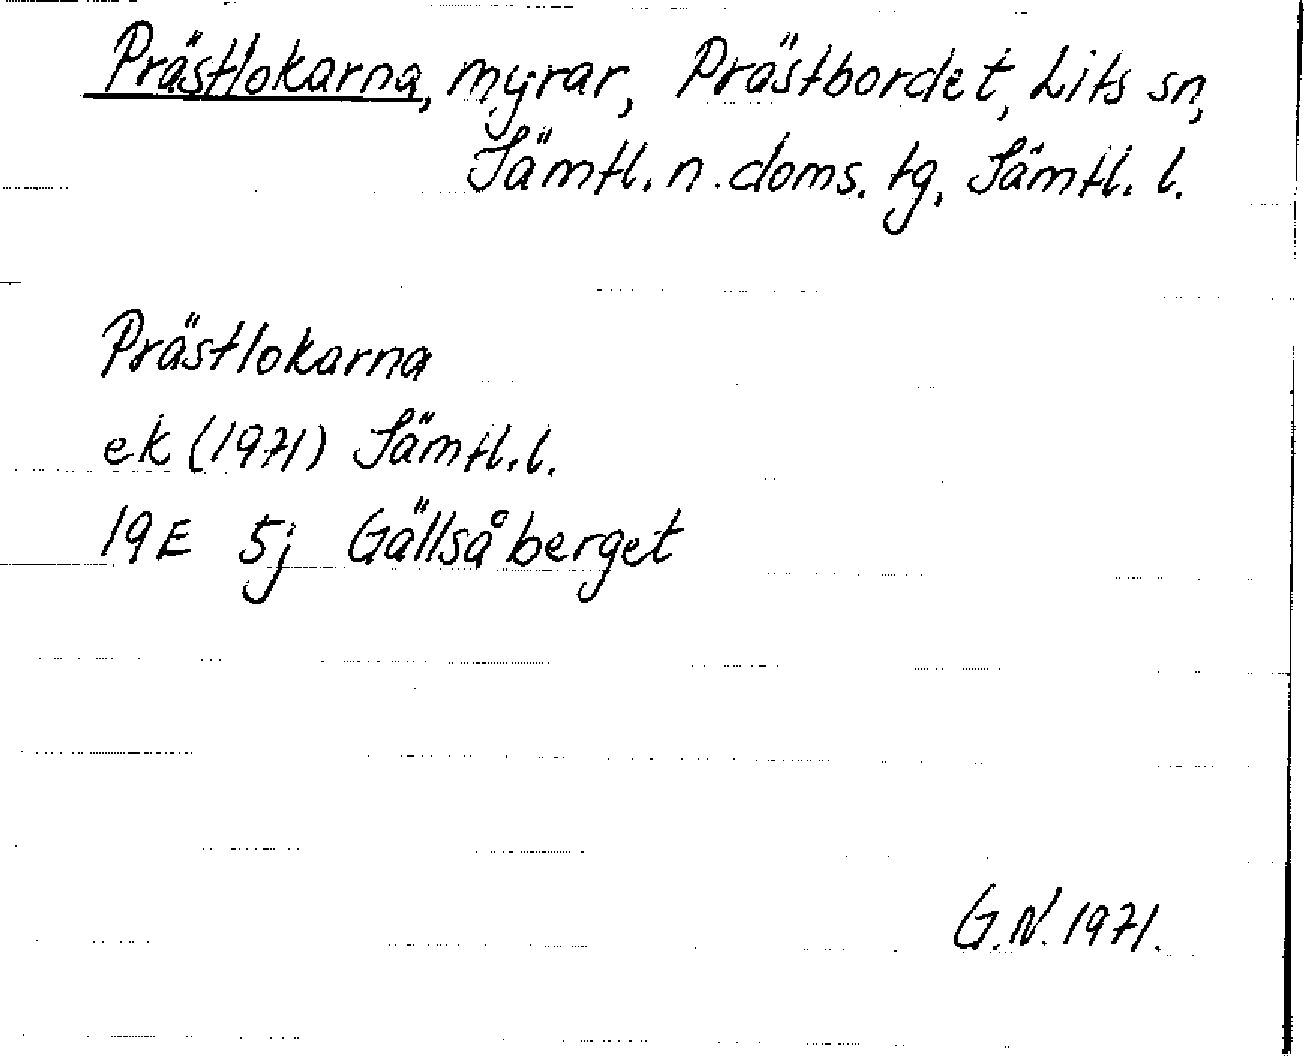 Prästlokarna, myrar, Prästbordet, Lits sn,
Jämtl. n. doms. tg, Jämtl. l.
Prästlokarna
ek (1971) Jämtl. l.
19E 5j Gällsåberget
G.N. 1971.